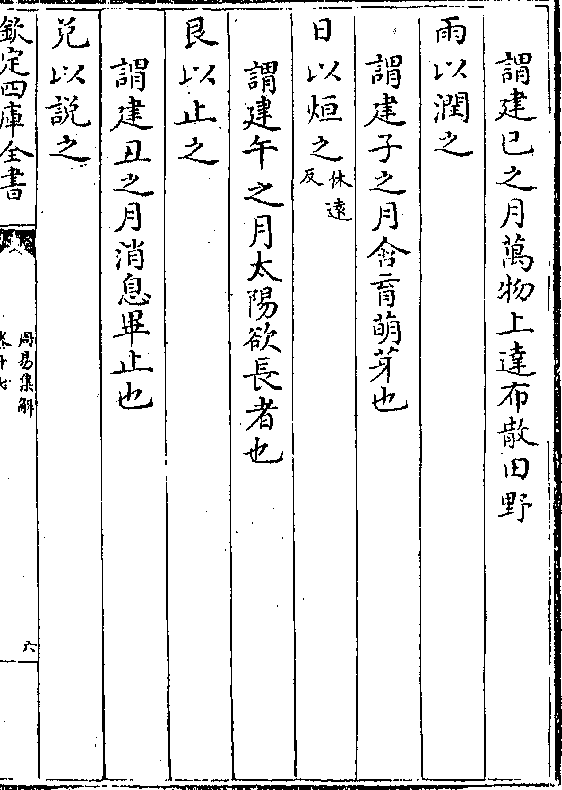 謂建巳之月萬物上達布散田野
雨以潤之
謂建子之月含育萌芽也
日以烜之休遠反
謂建午之月太陽欲長者也
艮以止之
謂建丑之月消息畢止也
兌以說之
欽定四庫全書
周易集解
卷十七
六